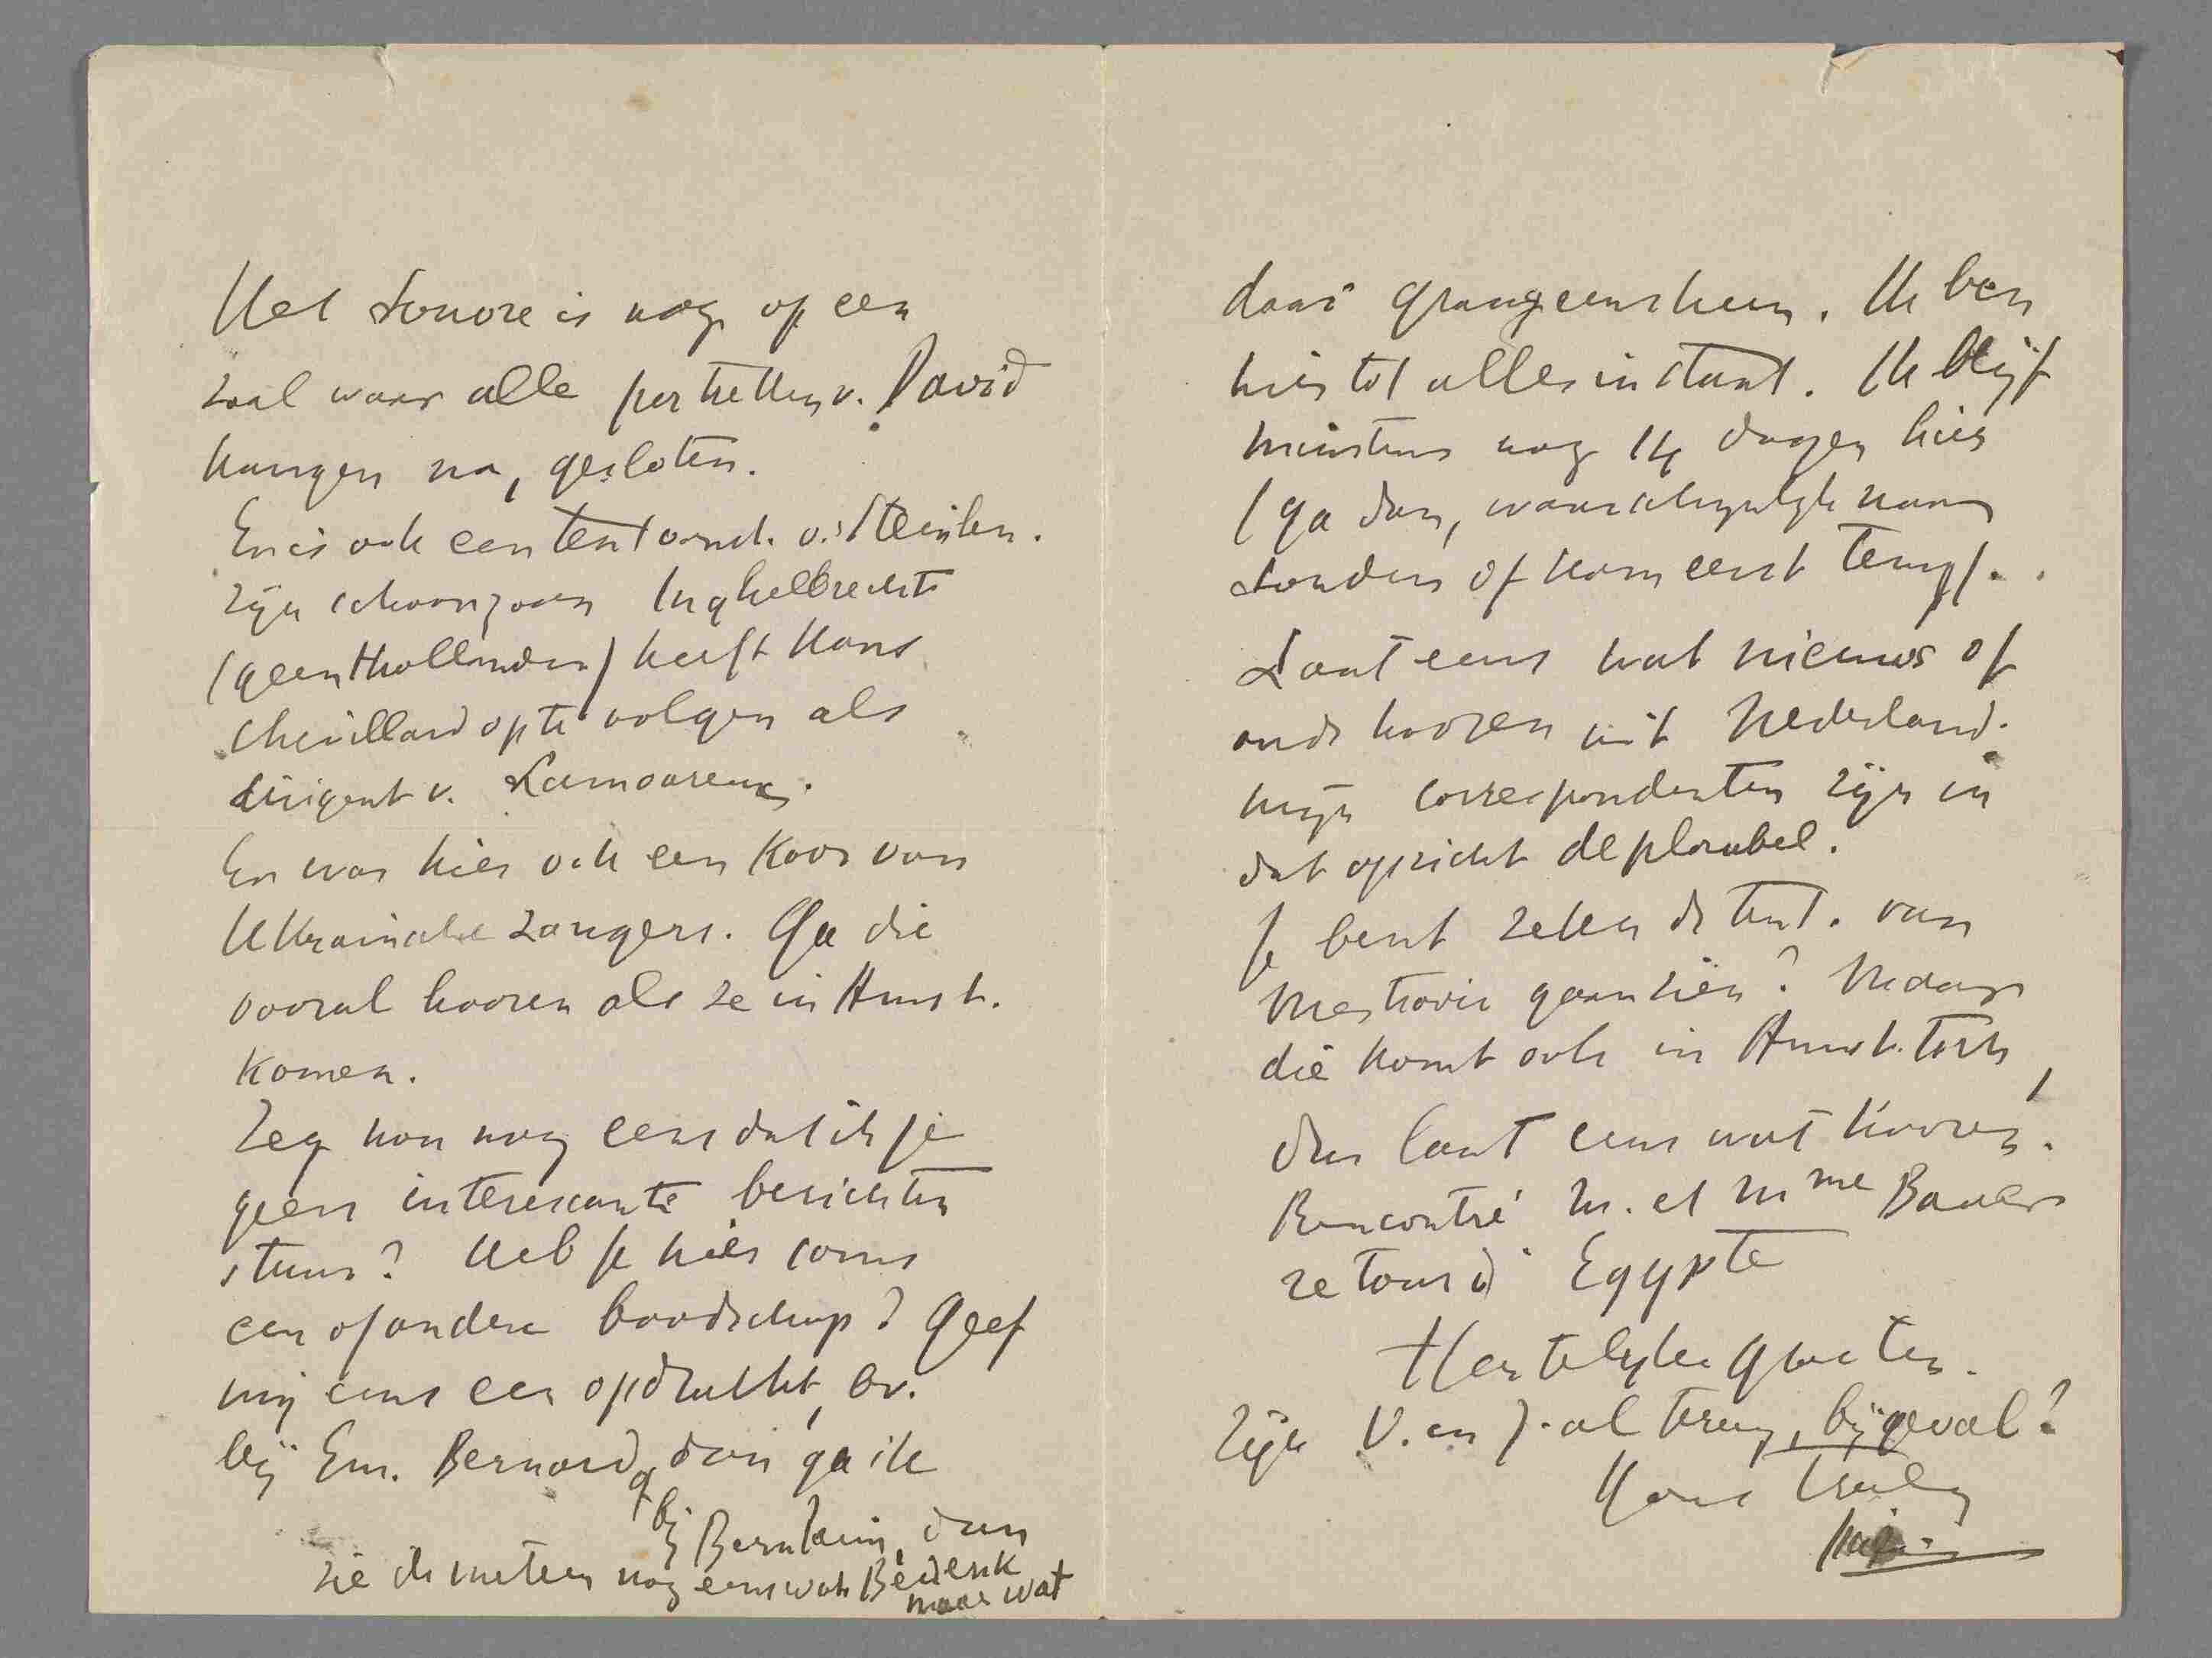 Het Louvre is nog op een
zaal waar alle portretten v. David
hangen na, gesloten.
Er is ook een tentoonst. v. Steinlen.
Zijn schoonzoon Inghelbrecht
(geen Hollander) heeft kans
Chevillard op te volgen als
dirigent v. Lamoureux.
Er was hier ook een koor van
Ukrainsche zangers. Ga die
vooral hooren als ze in Amst.
komen.
Zeg nou nog eens dat ik je
geen interessante berichten
stuur? Heb je hier soms
een of andere boodschap? Geef
mij eens een opdracht, bv.
bij Em. Bernard, dan ga ik
of bij Bernheim, dan
zie ik meteen nog eens wat. Bedenk
maar wat
daar graag eens heen. Ik ben
hier tot alles in staat. Ik blijf
minstens nog 14 dagen hier
(ga dan, waarschijnlijk naar
Londen of kom eerst terug).
Laat eens wat nieuws of
ouds hooren uit Nederland.
Mijn correspondenten zijn in
dat opzicht deplorabel.
Je bent zeker de tent. van
Mestrovic gaan zien? Maar
die komt ook in Amst. toch,
dus laat eens wat hooren.
Rencontré M. et Mme Bauer
retour d' Egypte
Hartelijke groeten.
Zijn V. en J. al terug, bijgeval?
Yours truly